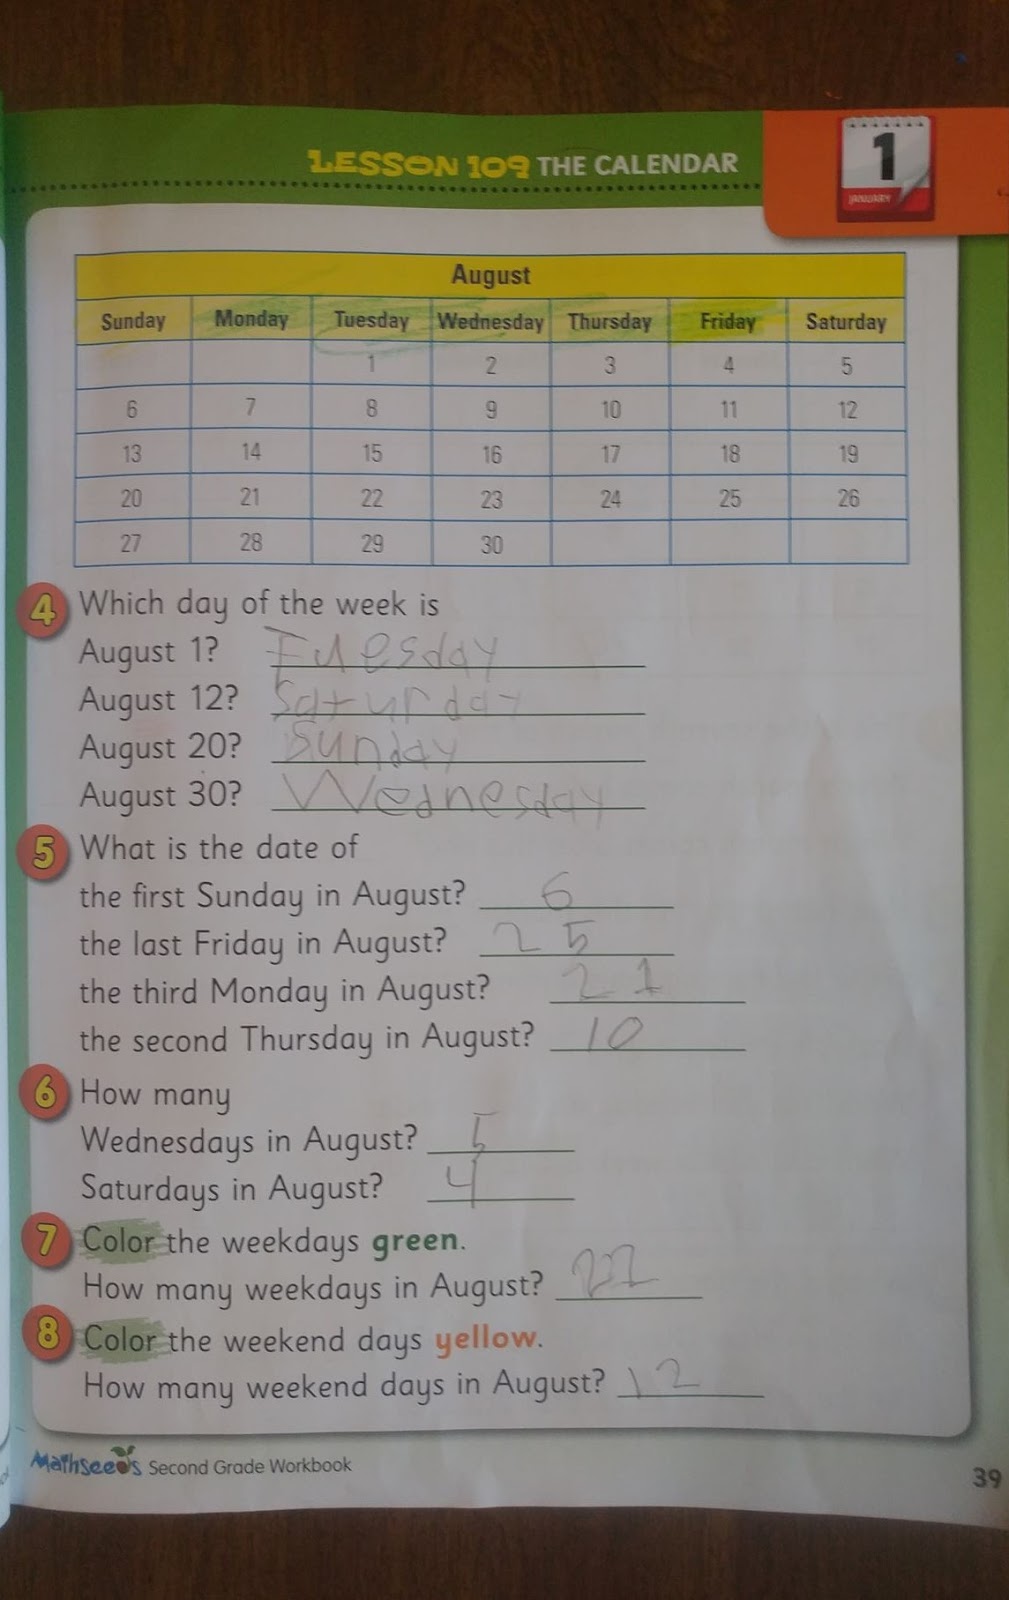 LESSON 109 THE CALENDAR
1
JANUARY
August
Sunday Monday Tuesday Wednesday Thursday Friday Saturday
1 2 3 4 5
6 7 8 9 10 11 12
13 14 15 16 17 18 19
20 21 22 23 24 25 26
27 28 29 30
4 Which day of the week is
August 1? Tuesday
August 12? Saturday
August 20? Sunday
August 30? Wednesday
5 What is the date of
the first Sunday in August? 6
the last Friday in August? 25
the third Monday in August? 21
the second Thursday in August? 10
6 How many
Wednesdays in August? 5
Saturdays in August? 4
7 Color the weekdays green.
How many weekdays in August? 22
8 Color the weekend days yellow.
How many weekend days in August? 12
Mathseeds Second Grade Workbook
39